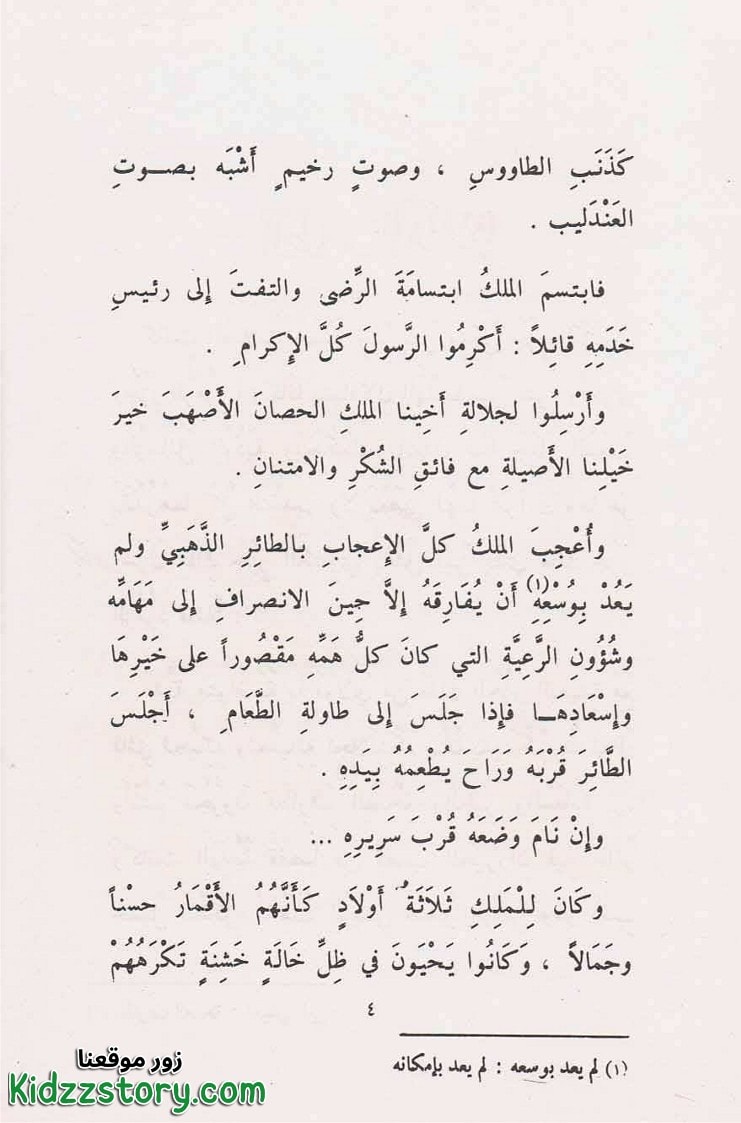 كَذَنَبِ الطاووسِ ، وصوتٍ رخيمٍ أَشْبَه بصـوتِ
العَنْدَليب .
فابتسمَ الملكُ ابتسامَةَ الرِّضى والتفتَ إلى رئيسِ
خَدَمِهِ قائِلاً : أَكْرِمُوا الرَّسولَ كُلَّ الإكرامِ .
وأَرْسِلُوا لجلالةِ أَخِينا الملكِ الحصانَ الأَصْهَبَ خيرَ
خَيْلِنا الأَصيلةِ مع فائقِ الشُكْرِ والامتنانِ .
وأُعْجِبَ الملكُ كلَّ الإعجابِ بالطائِرِ الذَّهَبِيِّ ولم
يَعُدْ بِوُسْعِهِ(١) أَنْ يُفَارِقَهُ إلاَّ حِينَ الانصرافِ إلى مَهَامِّه
وشُؤُونِ الرَّعِيَّةِ التي كانَ كلُّ هَمِّهِ مَقْصُوراً على خَيْرِهَا
وإِسْعَادِهَـا فإذا جَلَسَ إلى طاولةِ الطَّعَامِ ، أَجْلَسَ
الطَّائِرَ قُرْبَهُ وَرَاحَ يُطْعِمُهُ بِيَدِهِ .
وإنْ نَامَ وَضَعَهُ قُرْبَ سَرِيرِهِ ...
وكَانَ لِلْمَلِكِ ثَلَاثَةُ أَوْلَادٍ كَأَنَّهُمُ الأَقْمَارُ حسْناً
وجَمَالاً ، وَكَانُوا يَحْيَونَ في ظِلِّ خَالَةٍ خَشِنَةٍ تَكْرَهُهُمْ
٤
(١) لم يعد بوسعه : لم يعد بإمكانه
زور موقعنا
Kidzzstory.com